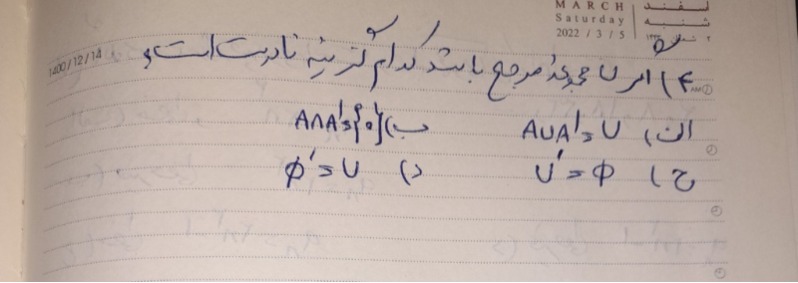 MARCH
Saturday
2022 / 3 / 5
اسفند
شنبه
1400/12/14
۴) اگر U مجموعهٔ مرجع باشد کدام گزینه نادرست است؟
الف) A∪A′=U ب) A∩A′={0}
ج) U′=Φ د) Φ′=U